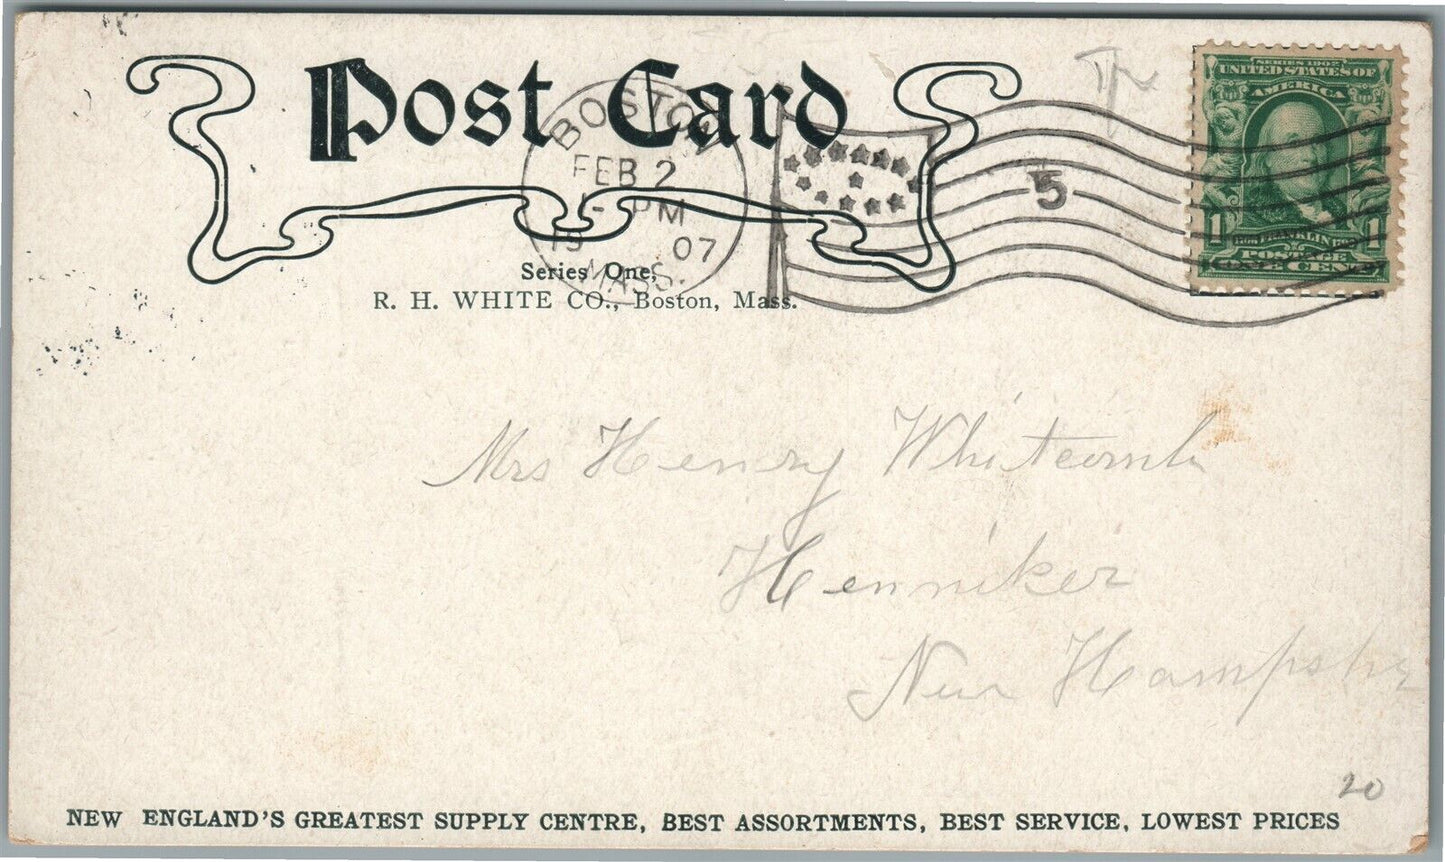 Post Card
BOSTON
FEB 2
PM
19 07
MASS.
5
SERIES 1902
UNITED STATES OF
AMERICA
1 FRANKLIN 1
POSTAGE
ONE CENT
Series One,
R. H. WHITE CO., Boston, Mass.
Mrs Henry Whitcomb
Henniker
New Hampshire
20
NEW ENGLAND'S GREATEST SUPPLY CENTRE, BEST ASSORTMENTS, BEST SERVICE, LOWEST PRICES